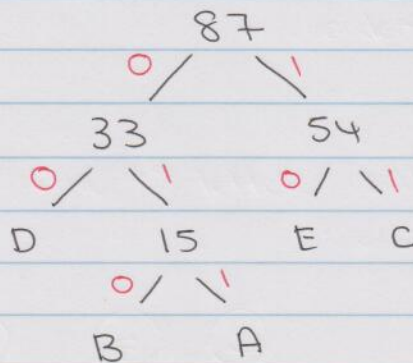 87
0 1
33 54
0 1 0 1
D 15 E C
0 1
B A